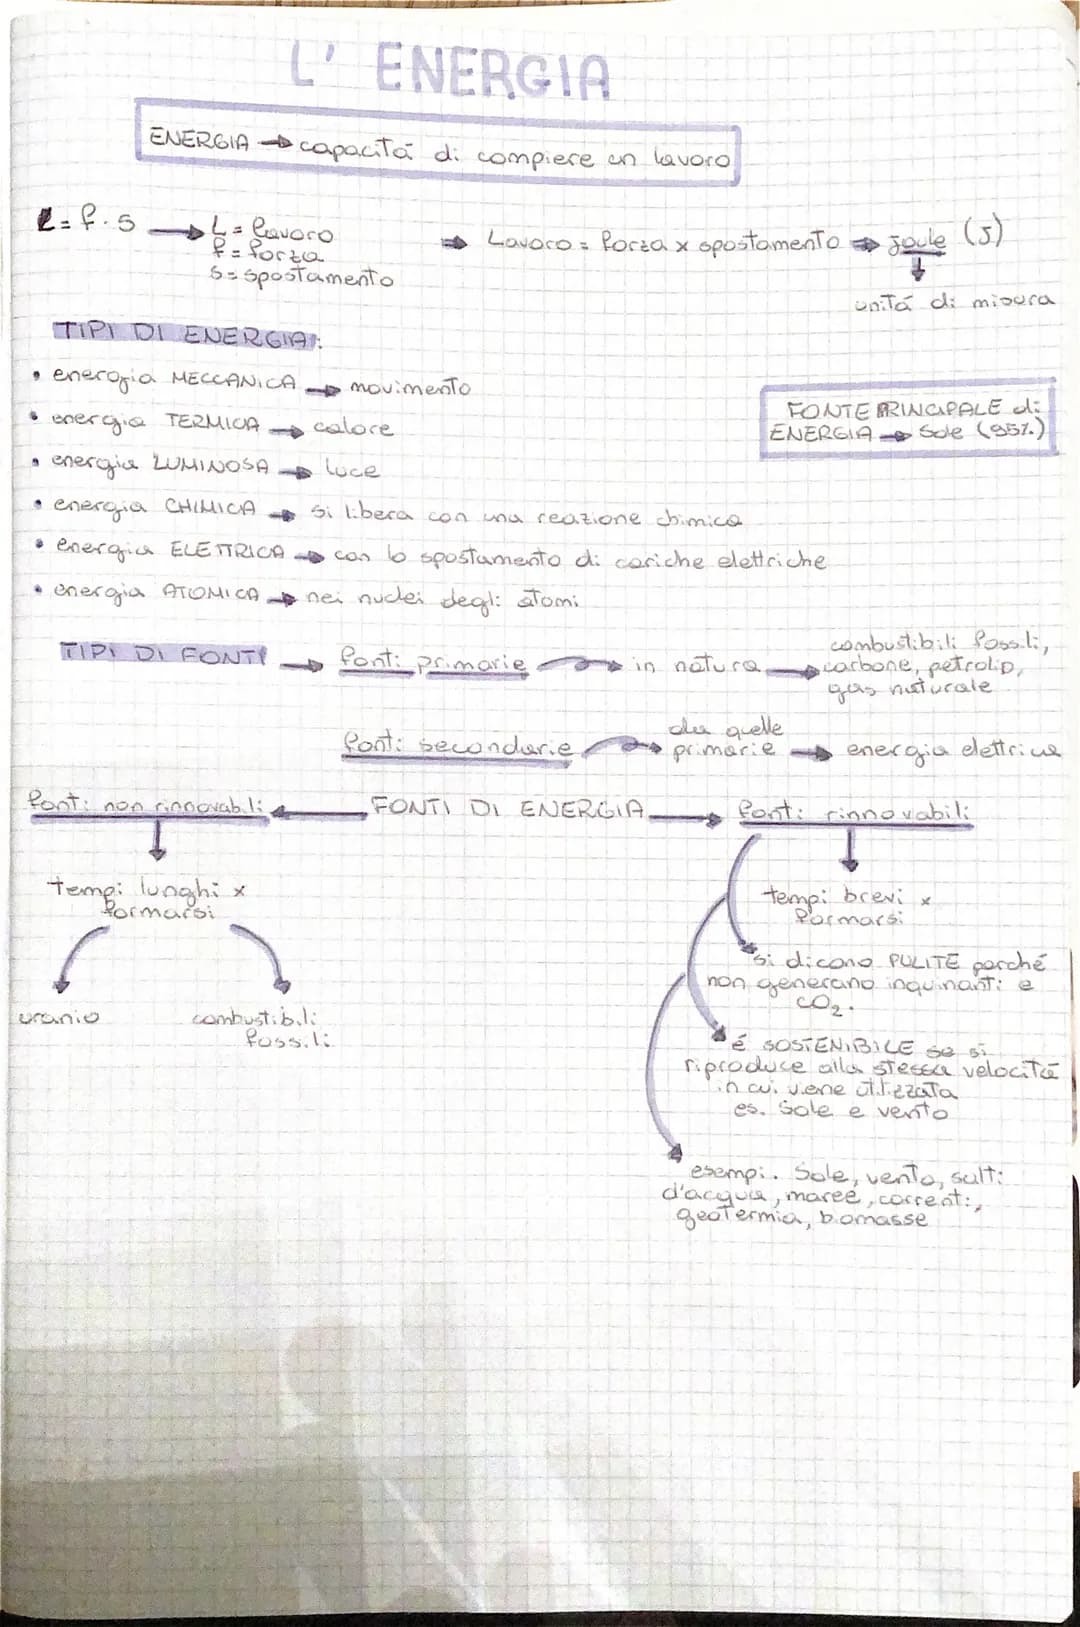 L' ENERGIA
ENERGIA → capacitá di compiere un lavoro
L = f · s → L = lavoro
f = forza
s = spostamento
⇒ Lavoro = forza x spostamento ⇒ joule (J)
↓
unitá di misura
TIPI DI ENERGIA:
• energia MECCANICA → movimento
• energia TERMICA → calore
• energia LUMINOSA → luce
• energia CHIMICA → si libera con una reazione chimica
• energia ELETTRICA → con lo spostamento di cariche elettriche
• energia ATOMICA → nei nuclei degli atomi
FONTE PRINCIPALE di
ENERGIA → Sole (95%)
TIPI DI FONTI → fonti primarie → in natura → combustibili fossili,
carbone, petrolio,
gas naturale
fonti secondarie → da quelle
primarie → energia elettrica
fonti non rinnovabili ← FONTI DI ENERGIA → fonti rinnovabili
tempi lunghi x
formarsi
uranio
combustibili
fossili
tempi brevi x
formarsi
si dicono PULITE perché
non generano inquinanti e
CO2.
é SOSTENIBILE se si
riproduce alla stessa velocitá
in cui viene utilizzata
es. Sole e vento
esempi. Sole, vento, salti
d'acqua, maree, correnti,
geotermia, biomasse